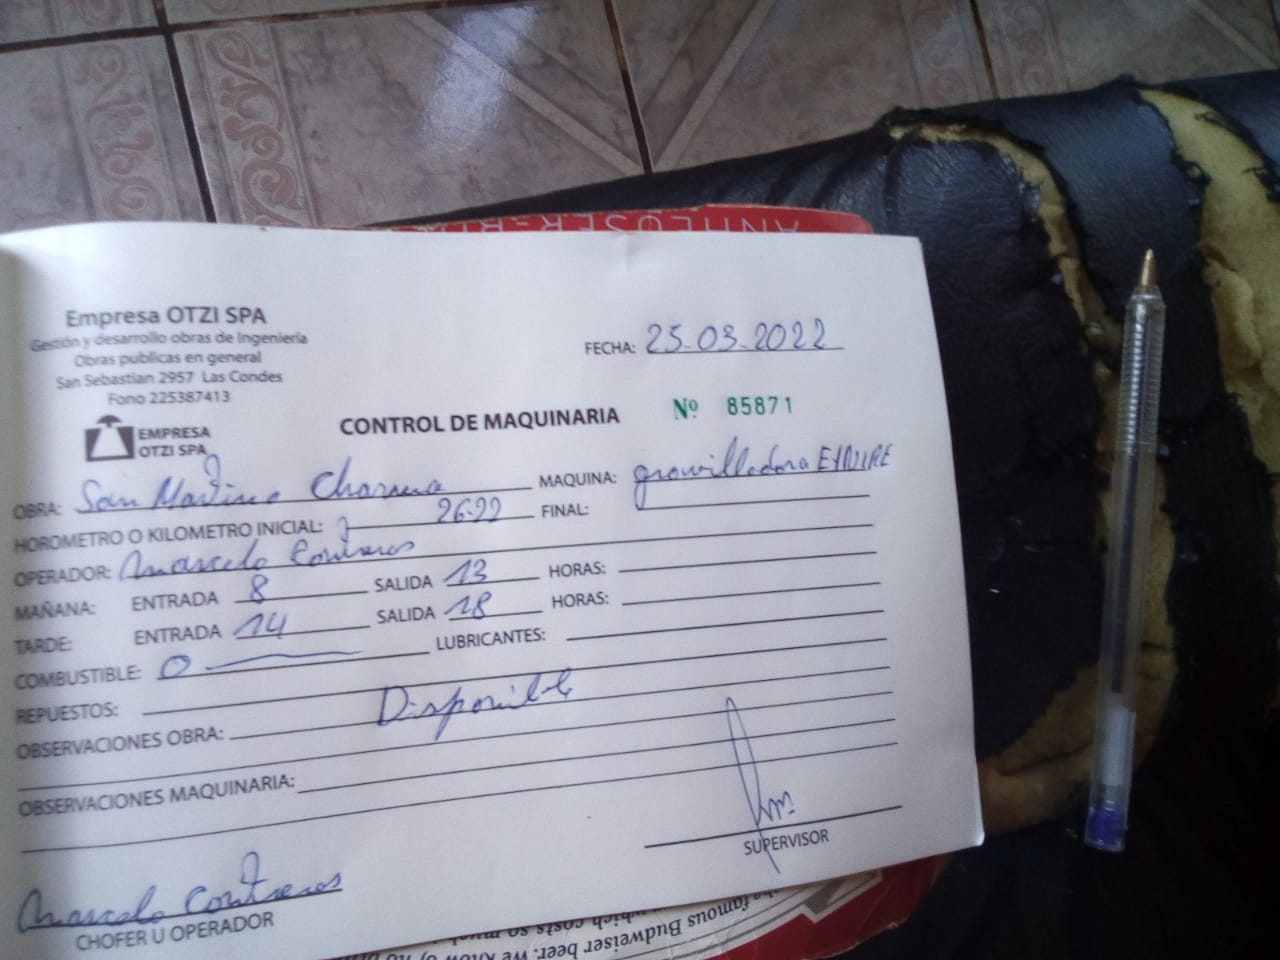 ANTILOSER-
Empresa OTZI SPA
Gestión y desarrollo obras de Ingeniería
Obras publicas en general
San Sebastian 2957 Las Condes
Fono 225387413
EMPRESA
OTZI SPA
FECHA: 25-03-2022
CONTROL DE MAQUINARIA Nº 85871
OBRA: San Martino Charrua MAQUINA: gravilladora
HOROMETRO O KILOMETRO INICIAL: 2622 FINAL:
OPERADOR: Marcelo Contreras
MAÑANA: ENTRADA 8 SALIDA 13 HORAS:
TARDE: ENTRADA 14 SALIDA 18 HORAS:
COMBUSTIBLE: 0 LUBRICANTES:
REPUESTOS:
OBSERVACIONES OBRA: Disponible
OBSERVACIONES MAQUINARIA:
SUPERVISOR
Marcelo Contreras
CHOFER U OPERADOR
which costs so much
famous Budweiser beer. We know of no